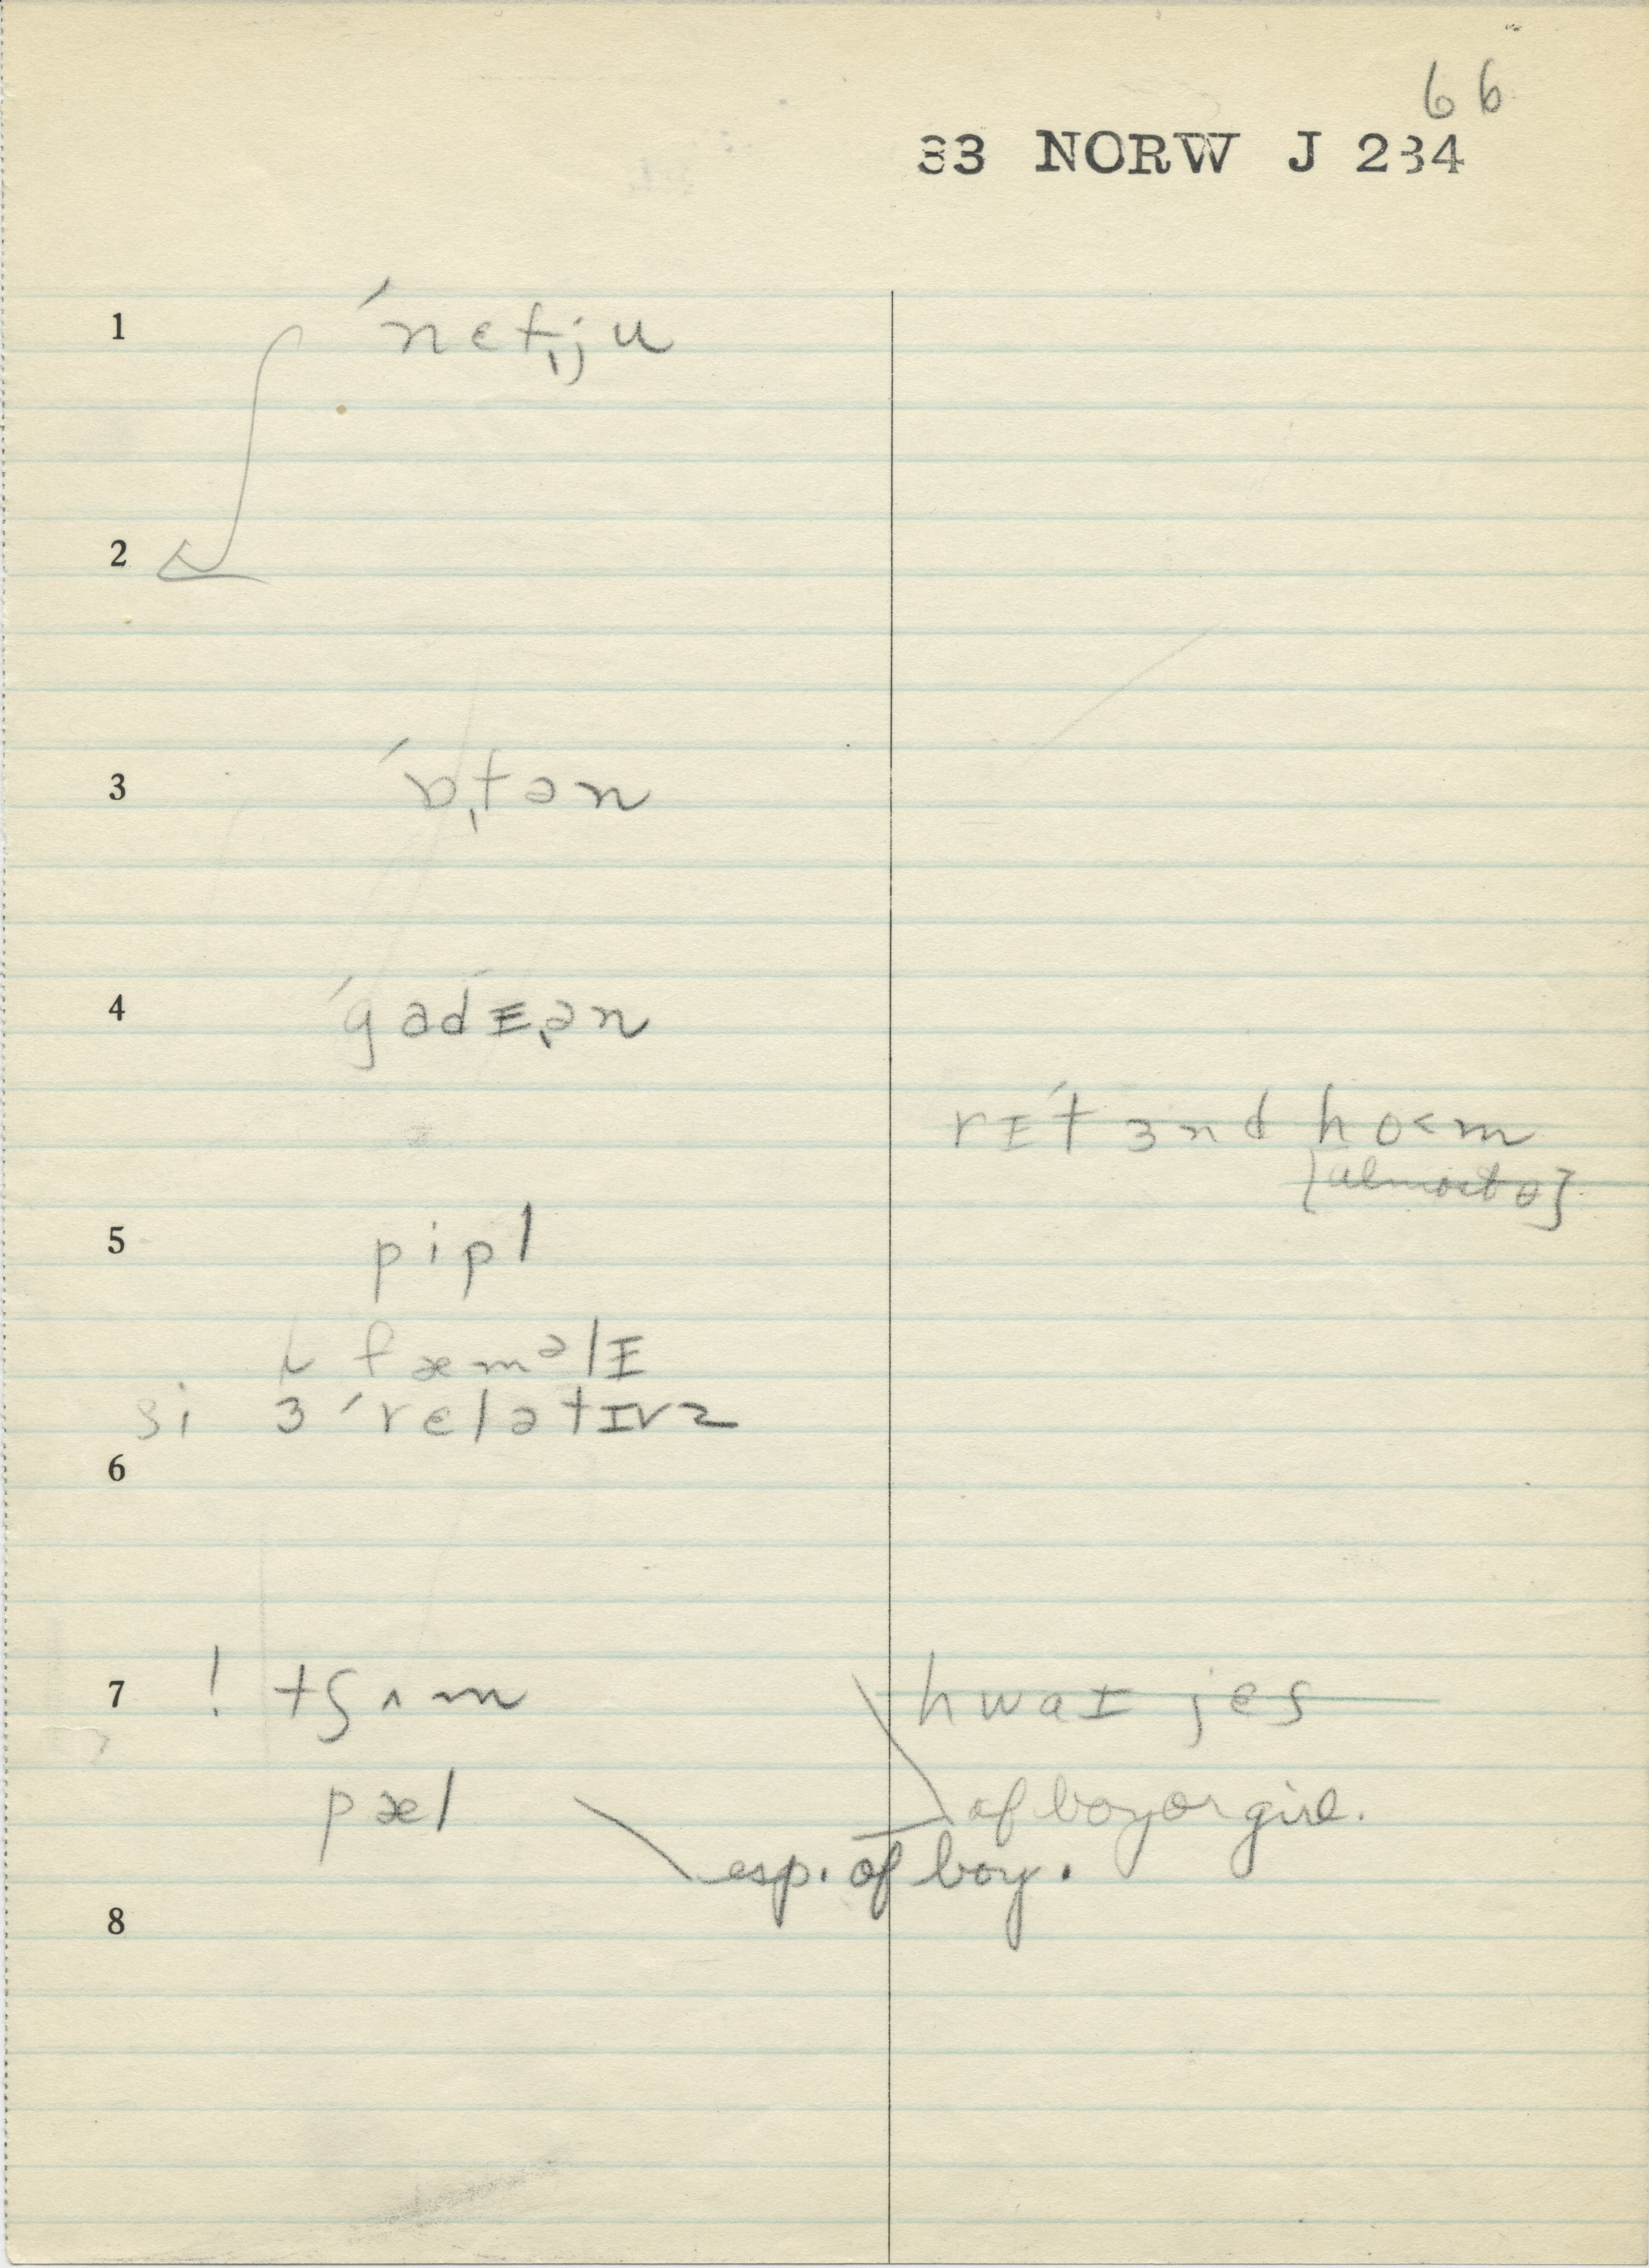 66
33 NORW J 234
1 ˈnɛt̩ju
2
3 ˈɒ̩tən
4 ˈgadɪ̩ən
rɪˈtɜnd ho<m
[almost ɵ]
5 pipl
ɩ fæmᵊlɪ
si ɜ ˈrɛlətɪvz
6
7 ! tʃʌm hwaɪ jes
pæl of boy or girl.
esp. of boy.
8